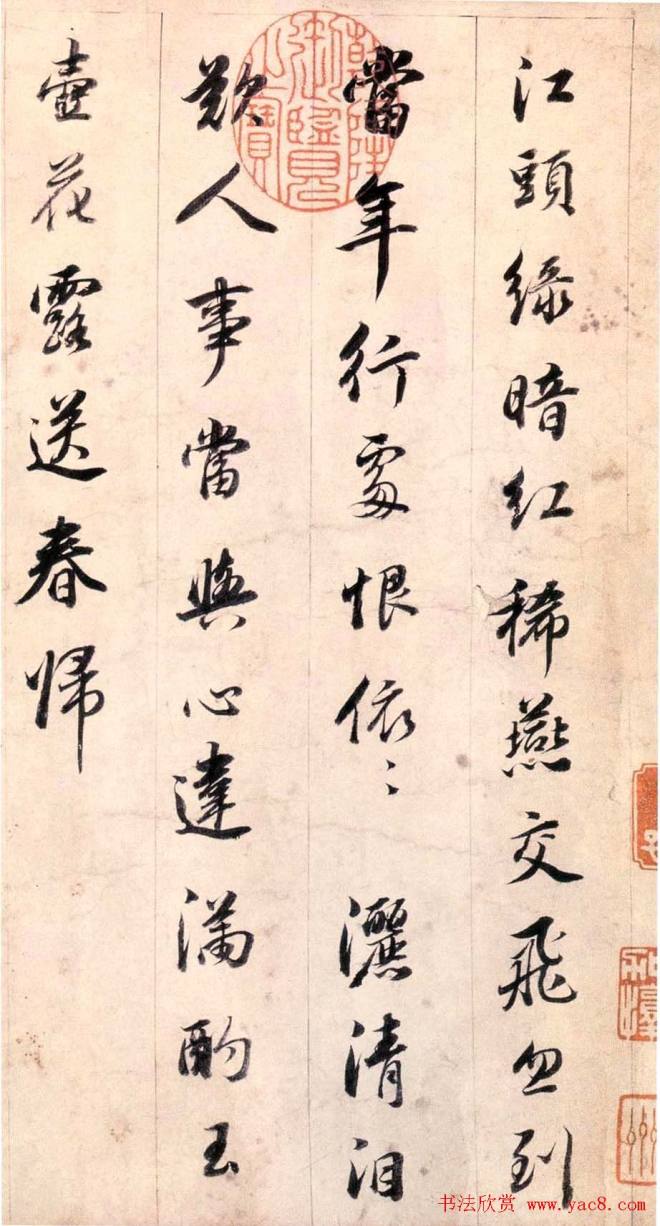 江頭緑暗紅稀燕交飛忽到
當年行處恨依〻 灑清泪
歎人事當與心違滿酌玉
壺花露送春歸
乾隆御覽之寶
书法欣赏 www.yac8.com